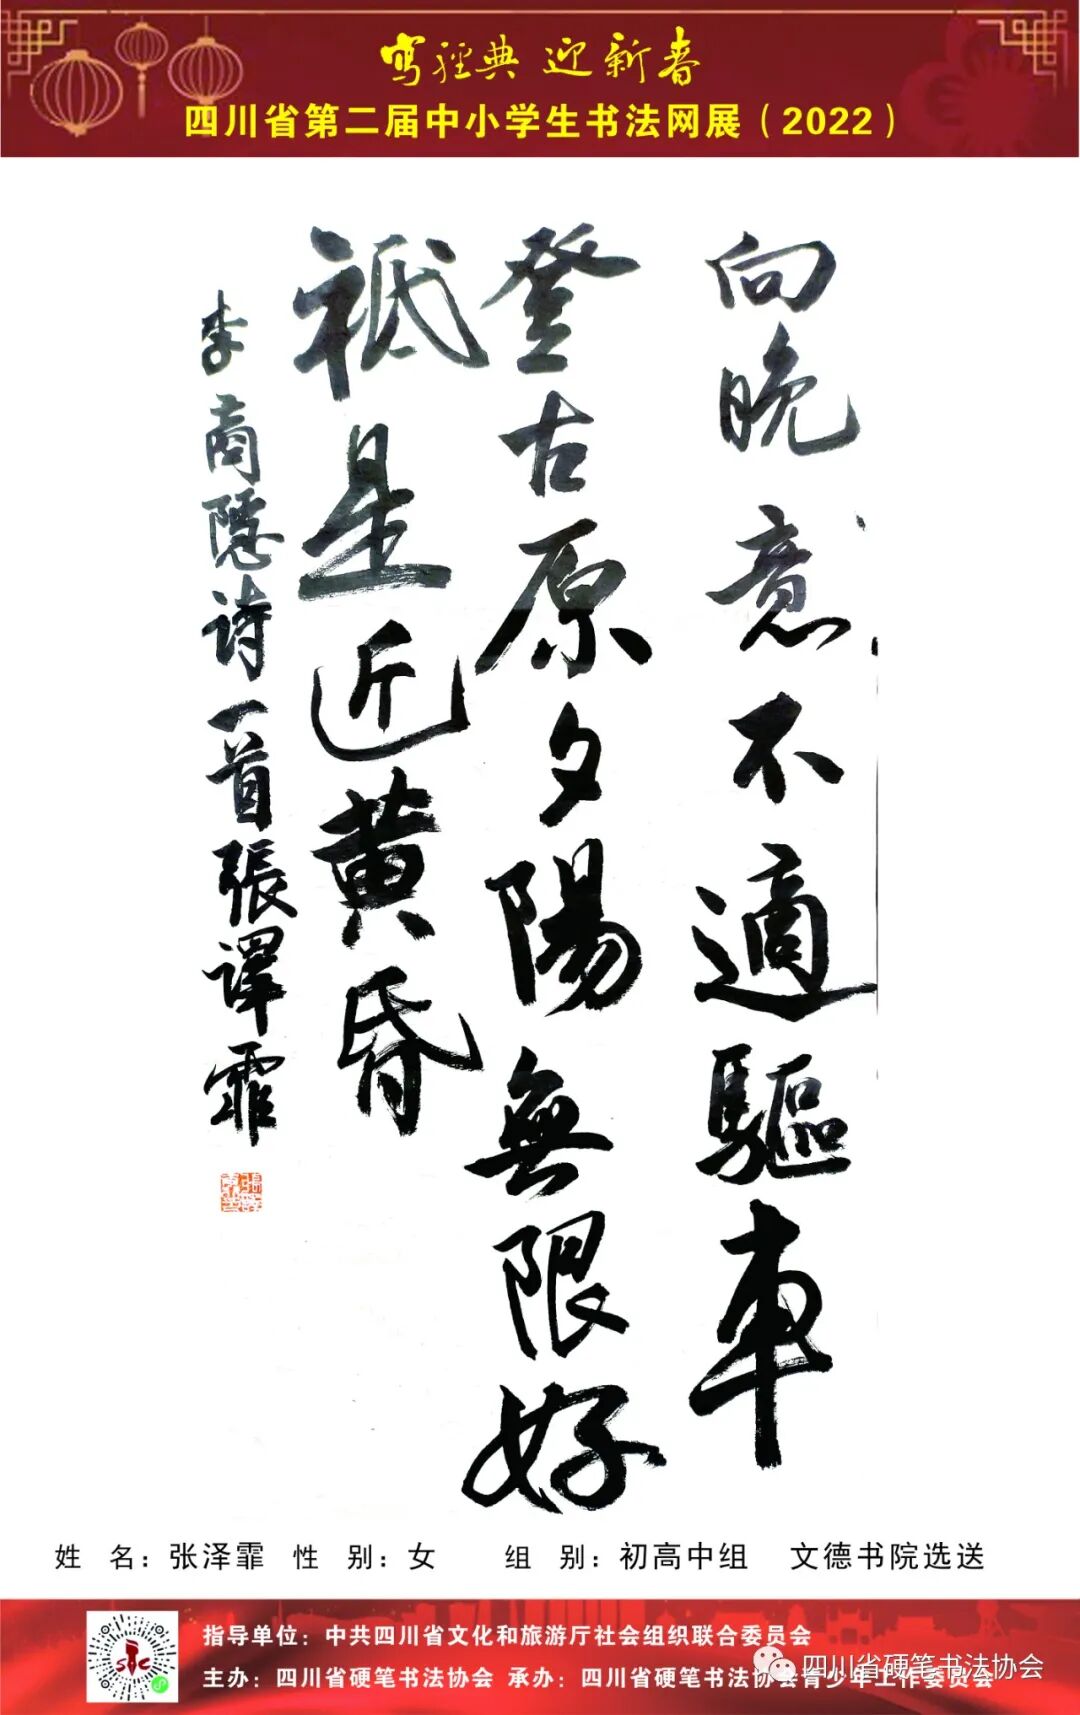 写经典 迎新春
四川省第二届中小学生书法网展（2022）
向晚意不適驅車
登古原夕陽無限好
祇是近黄昏
李商隱诗一首張譯霏
姓 名：张泽霏 性 别：女 组 别：初高中组 文德书院选送
指导单位：中共四川省文化和旅游厅社会组织联合委员会
主办：四川省硬笔书法协会 承办：四川省硬笔书法协会青少年工作委员会
四川省硬笔书法协会